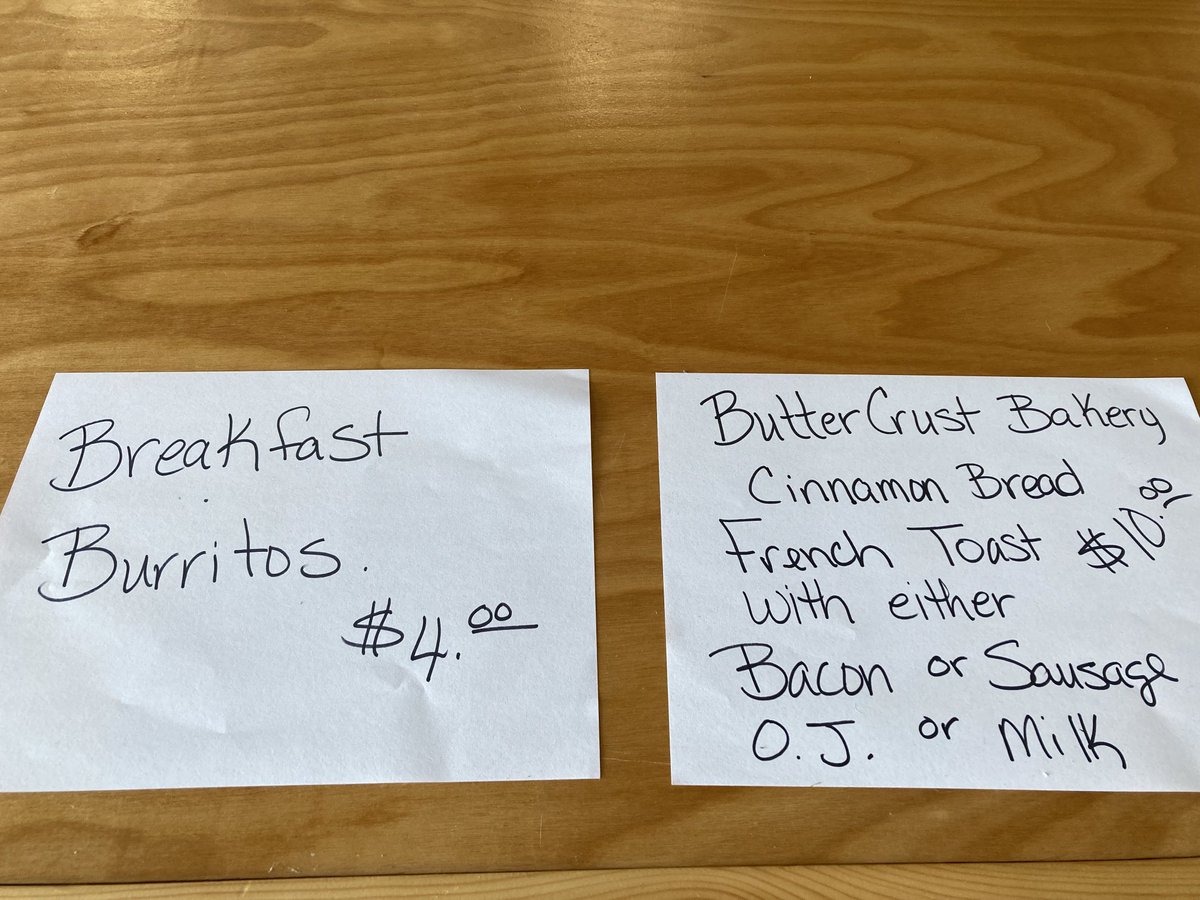 Breakfast
Burritos.
$4.00
ButterCrust Bakery
Cinnamon Bread
French Toast $10.00
with either
Bacon or Sausage
O.J. or Milk